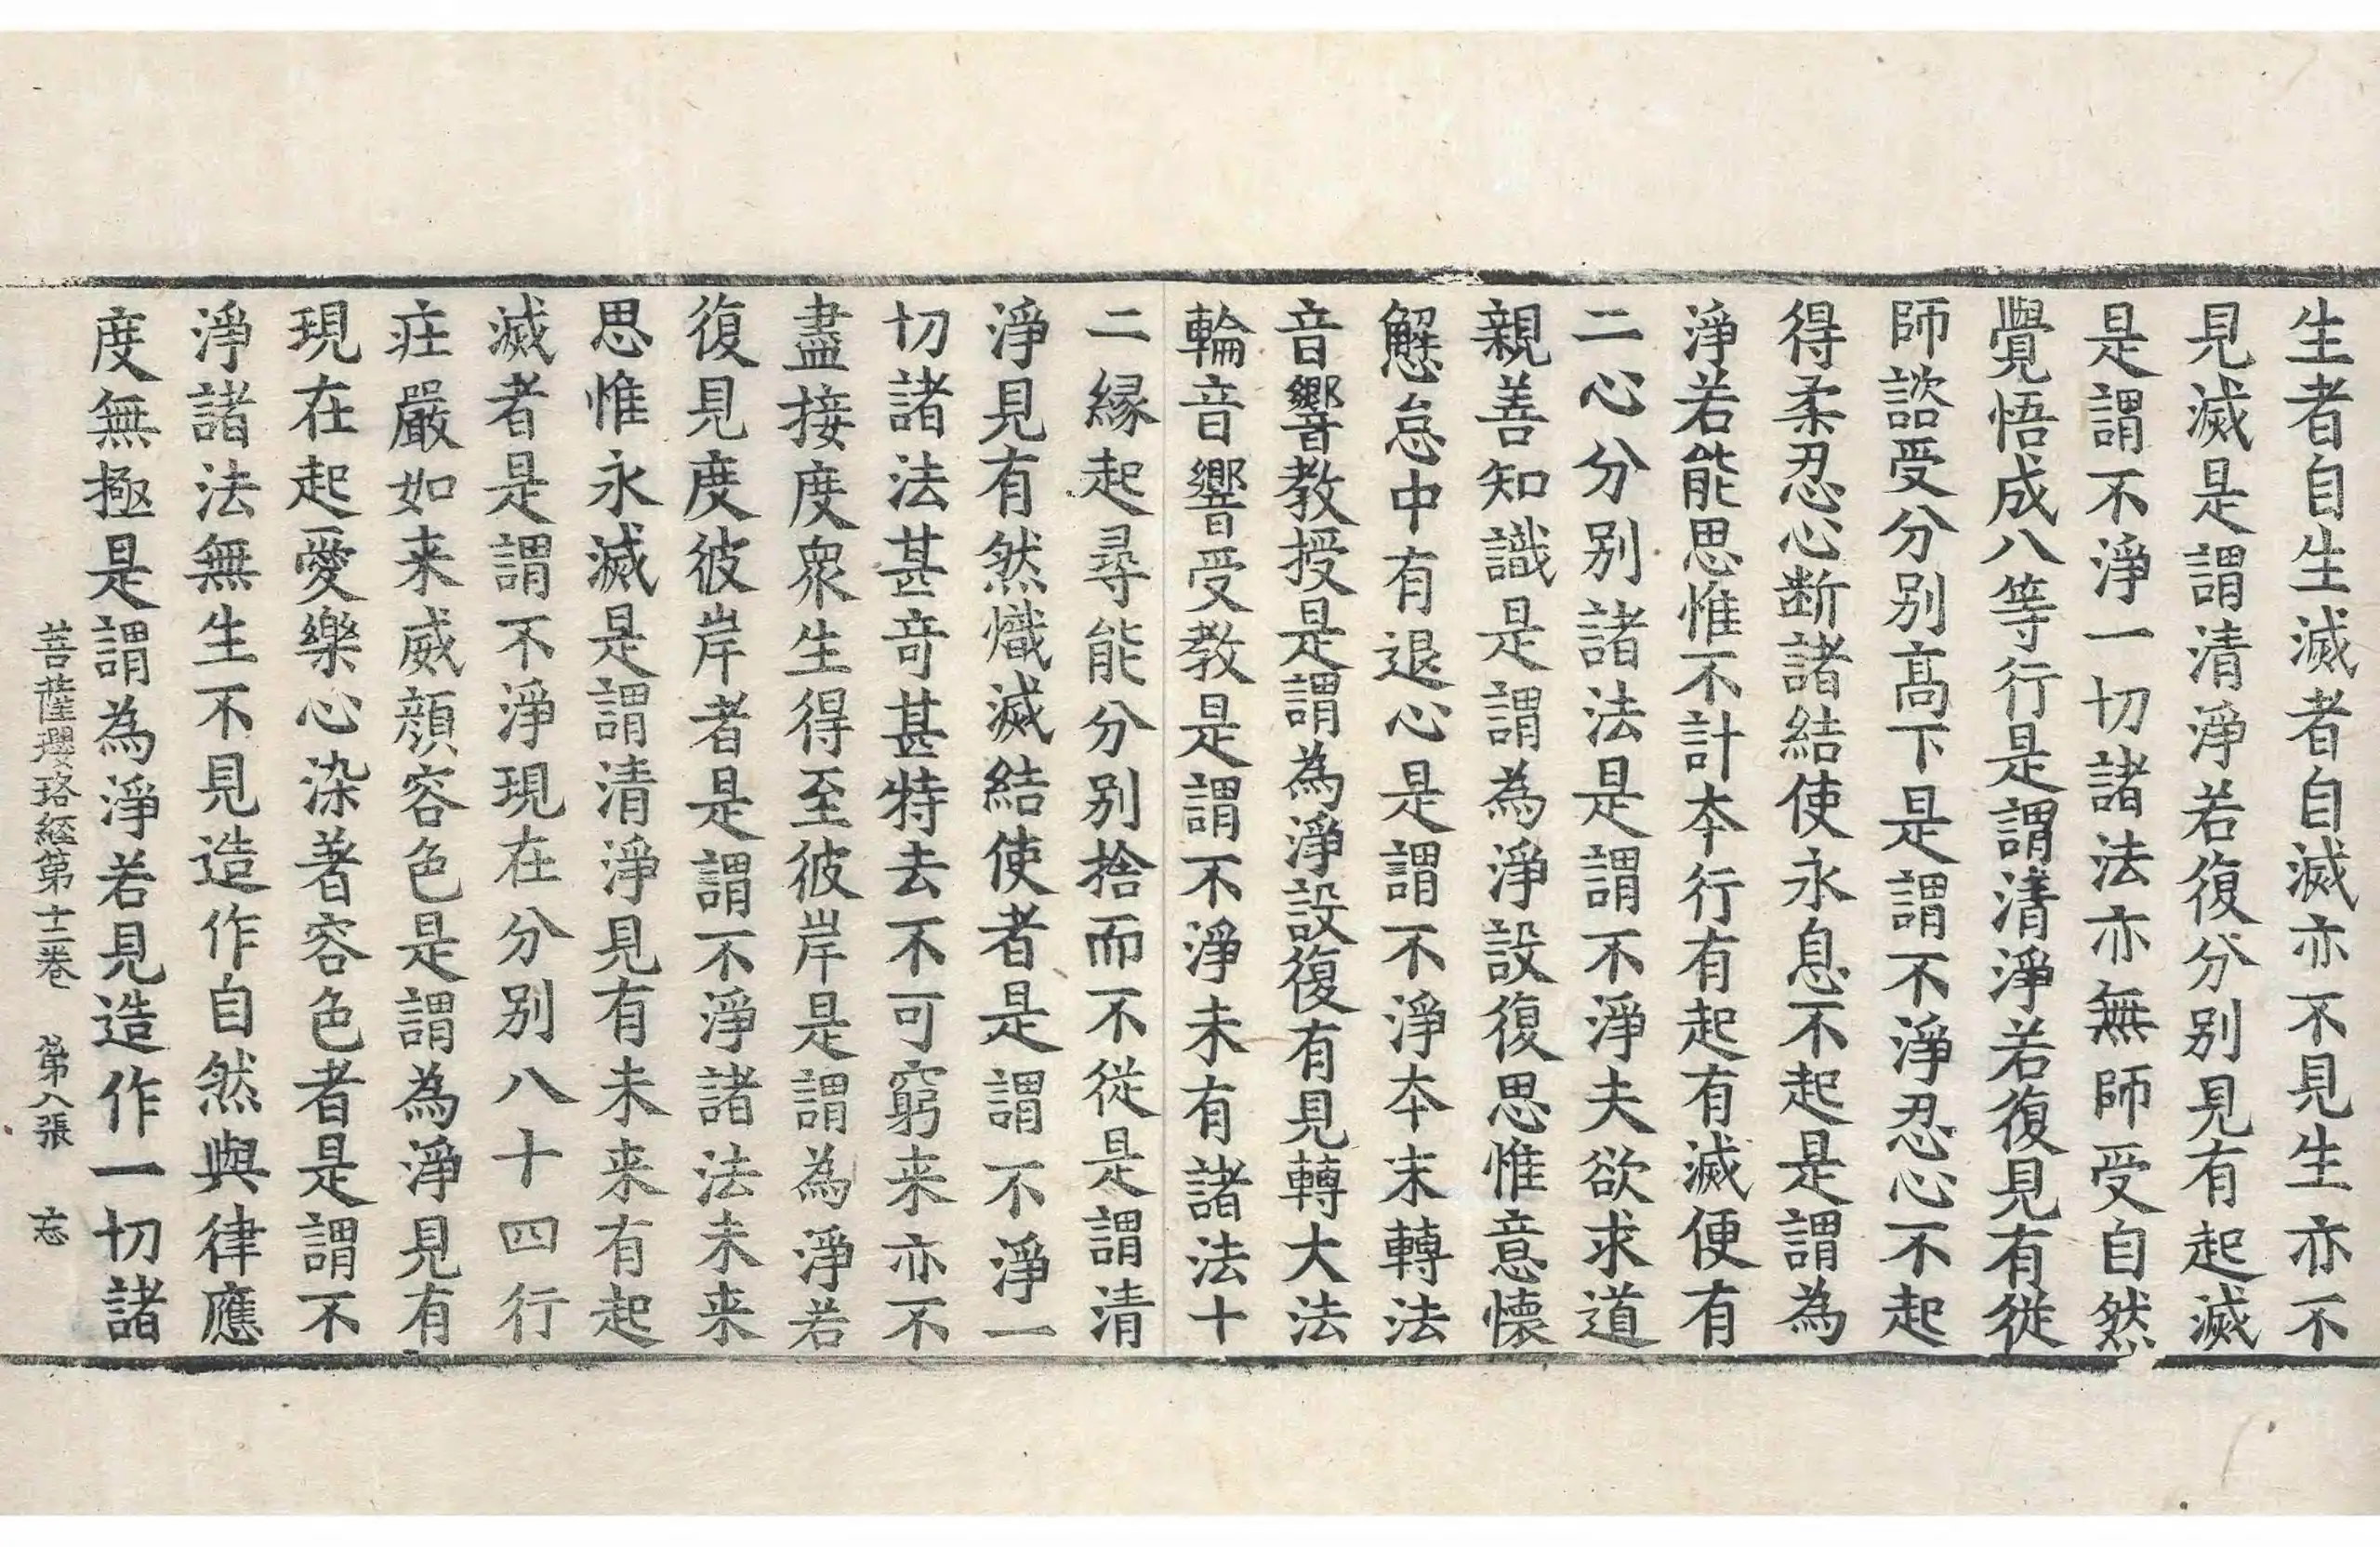 生者自生滅者自滅亦不見生亦不
見滅是謂清淨若復分別見有起滅
是謂不淨一切諸法亦無師受自然
覺悟成八等行是謂清淨若復見有從
師諮受分別髙下是謂不淨忍心不起
得柔忍心断諸結使永息不起是謂為
淨若能思惟不計夲行有起有滅便有
二心分別諸法是謂不淨夫欲求道
親善知識是謂為淨設復思惟意懐
懈怠中有退心是謂不淨夲末轉法
音響教授是謂為淨設復有見轉大法
輪音響受教是謂不淨未有諸法十
二縁起尋能分別捨而不從是謂清
淨見有然熾滅結使者是謂不淨一
切諸法甚竒甚特去不可窮来亦不
盡接度衆生得至彼岸是謂為淨若
復見度彼岸者是謂不淨諸法未来
思惟永滅是謂清淨見有未来有起
滅者是謂不淨現在分別八十四行
疘嚴如来威顔容色是謂為淨見有
現在起愛樂心染著容色者是謂不
淨諸法無生不見造作自然與律應
度無極是謂為淨若見造作一切諸
菩薩瓔珞經第十二卷 第八張 忘